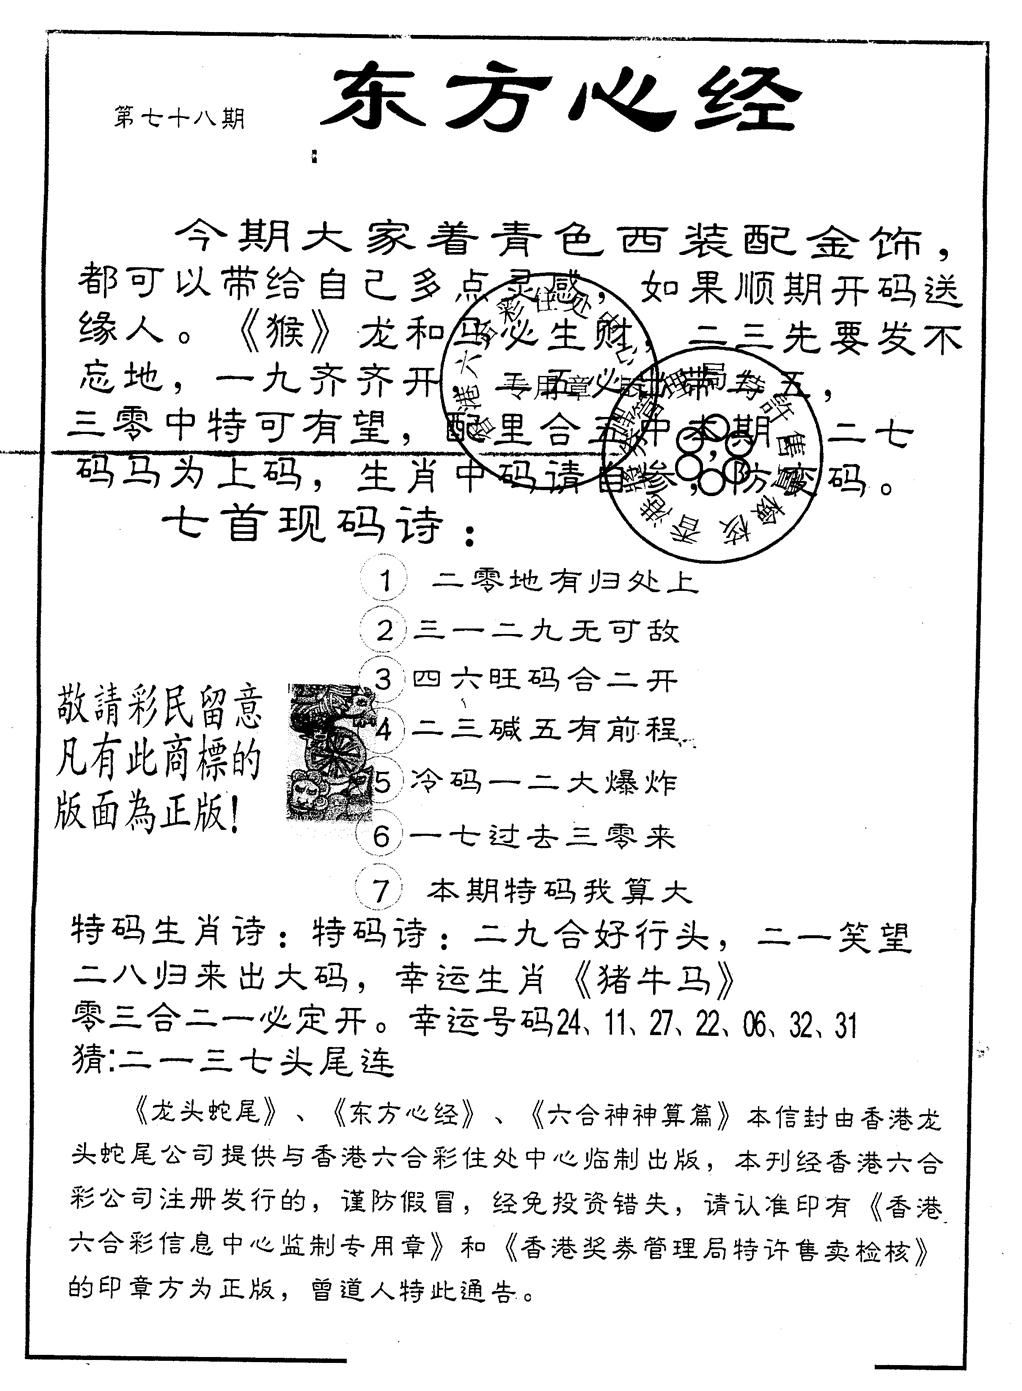 东方心经
第七十八期
今期大家着青色西装配金饰，
都可以带给自己多点灵感，如果顺期开码送
缘人。《猴》龙和马必生财，二三先要发不
忘地，一九齐齐开，二五必出带三五，
三零中特可有望，配里合五中本期，二七
码马为上码，生肖中码请自参，防变码。
七首现码诗：
1 二零地有归处上
2 三一二九无可敌
3 四六旺码合二开
4 二三碱五有前程
5 冷码一二大爆炸
6 一七过去三零来
7 本期特码我算大
敬請彩民留意
凡有此商標的
版面為正版!
特码生肖诗：特码诗：二九合好行头，二一笑望
二八归来出大码，幸运生肖《猪牛马》
零三合二一必定开。幸运号码24、11、27、22、06、32、31
猜:二一三七头尾连
《龙头蛇尾》、《东方心经》、《六合神神算篇》本信封由香港龙
头蛇尾公司提供与香港六合彩住处中心临制出版，本刊经香港六合
彩公司注册发行的，谨防假冒，经免投资错失，请认准印有《香港
六合彩信息中心监制专用章》和《香港奖券管理局特许售卖检核》
的印章方为正版，曾道人特此通告。
专用章